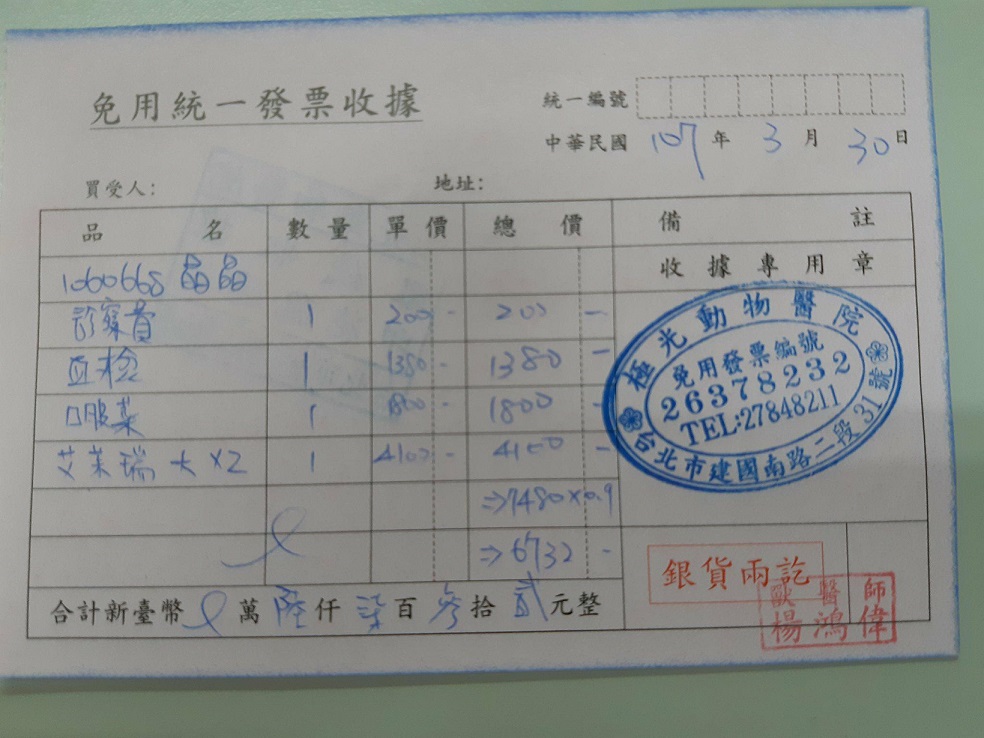 免用統一發票收據
統一編號
中華民國 107 年 3 月 30 日
買受人： 地址：
品名 數量 單價 總價 備註
收據專用章
1060668 晶晶
診察費 1 200 - 200 -
血檢 1 1380 - 1380 -
口服藥 1 1800 - 1800 -
艾茉瑞 大 x2 1 4100 - 4100 -
⇒7480x0.9
⇒6732 -
合計新臺幣 萬 陸 仟 柒 百 參 拾 貳 元整
極光動物醫院
免用發票編號
26378232
TEL:27848211
台北市建國南路二段31號
銀貨兩訖
獸醫師
楊鴻偉